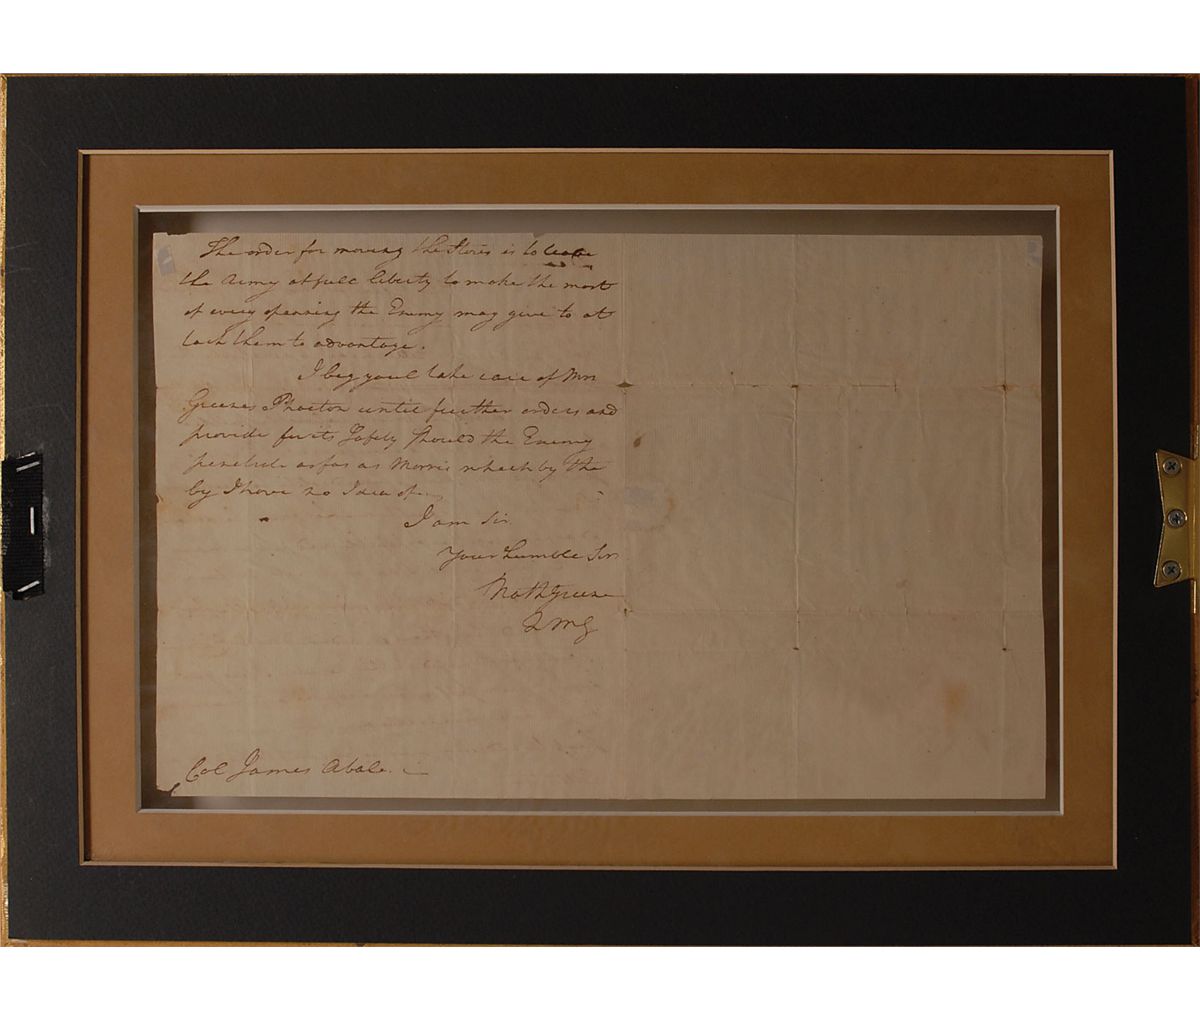 The order for moving the Stores is to leave
the Army at full liberty to make the most
of every opening the Enemy may give to at
tack them to advantage.
I beg youl take care of Mrs
Greenes Phaeton until further orders and
provide for its Safety should the Enemy
penetrate as far as Morris which by the
by I have no Idea of.
I am Sir
Your humble Sr
Nath Greene
QMG
Col James Abale